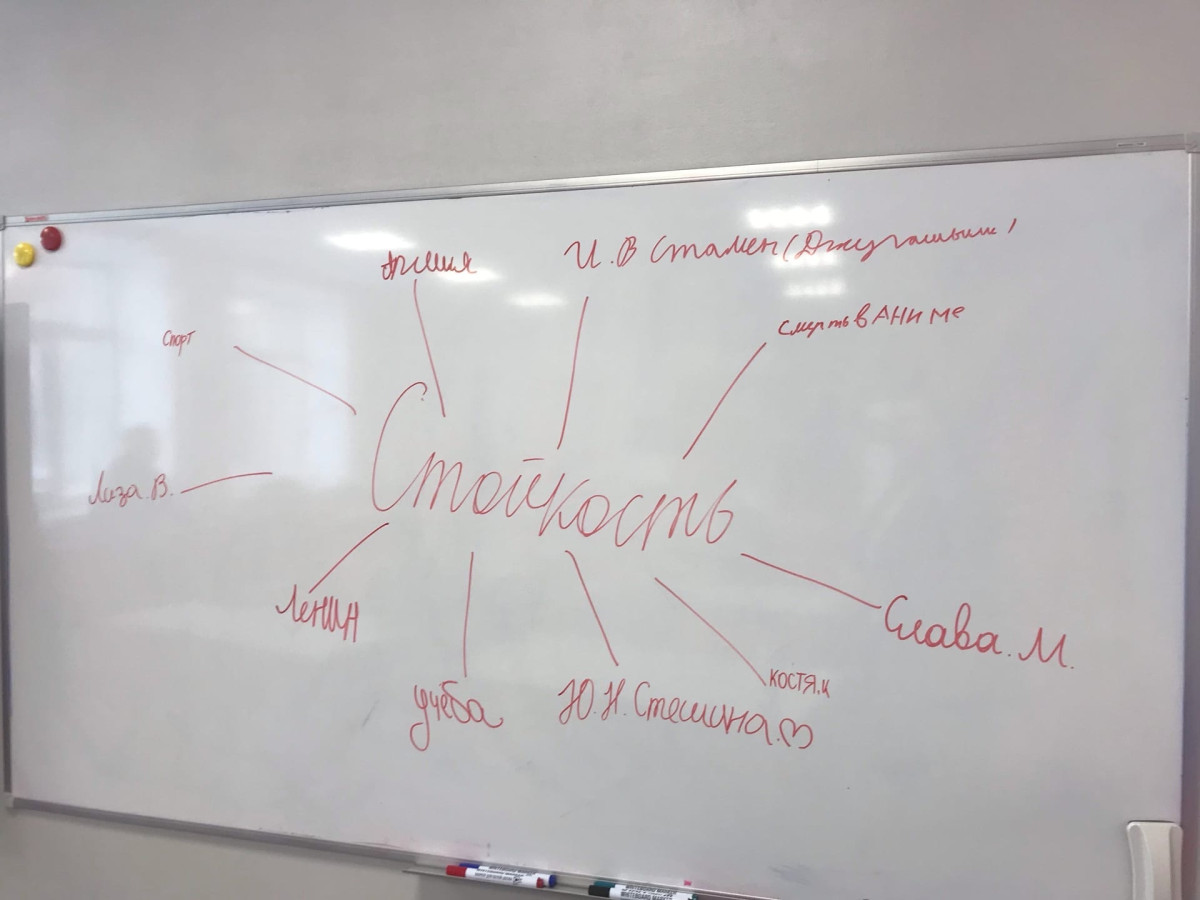 Армия
И. В Сталин (Джугашвили)
Спорт
смерть в АНИМЕ
Стойкость
Лиза. В.
Ленин
Слава. М.
учёба
Ю. Н. Стешина.
КОСТЯ.Ц